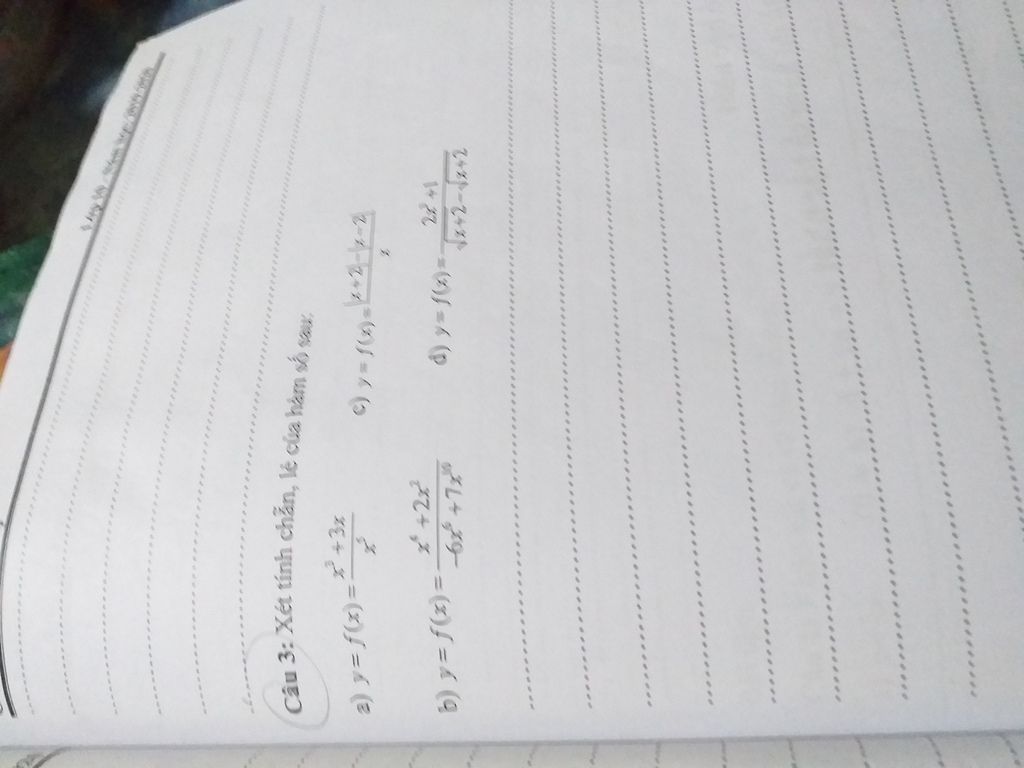 Câu 3: Xét tính chẵn, lẻ của hàm số sau:
a) y = f(x) = (x³ + 3x)/x⁵
c) y = f(x) = (|x+2| − |x−2|)/x
b) y = f(x) = (x⁴ + 2x²)/(−6x⁶ + 7x¹⁰)
d) y = f(x) = (2x³ + 1)/(√(x+2) − √(x+2))